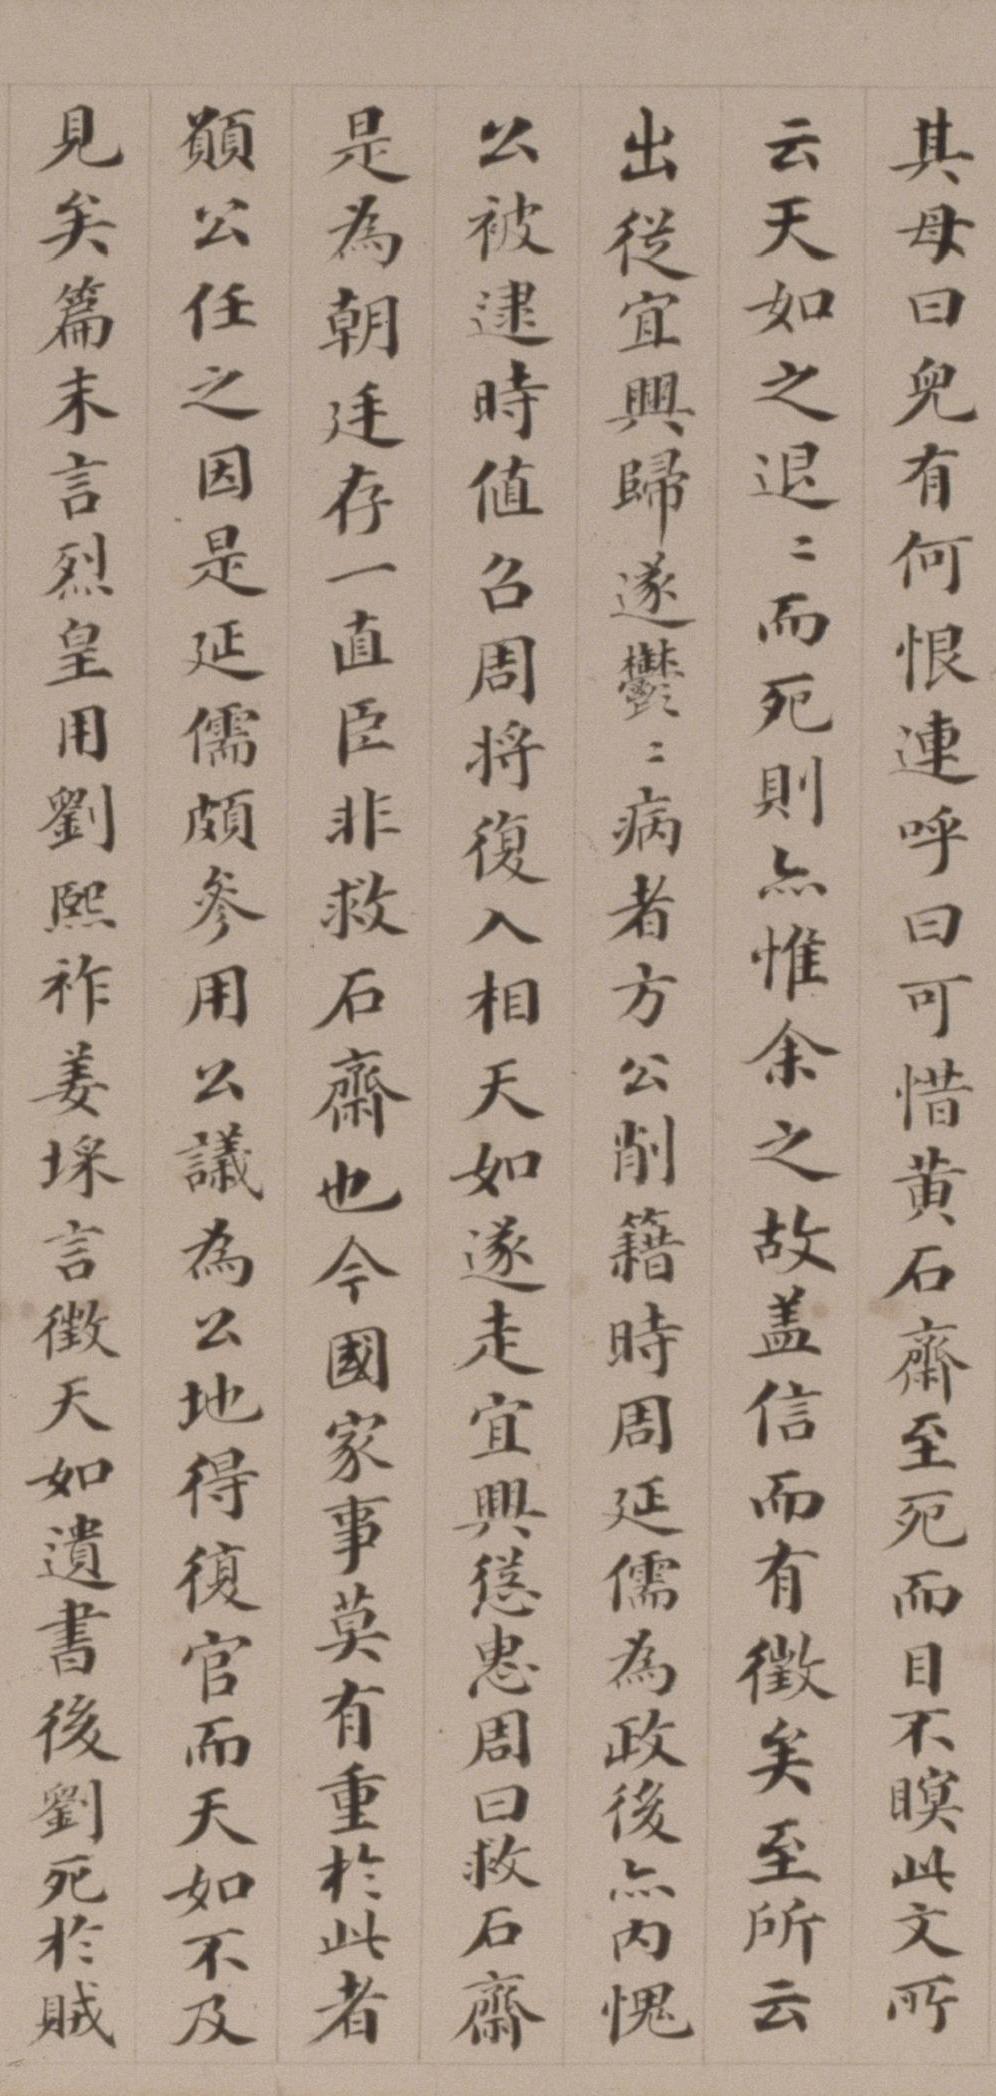 其母曰兒有何恨連呼曰可惜黄石齋至死而目不瞑此文所
云天如之退〻而死則亦惟余之故盖信而有徵矣至所云
出從宜興歸遂鬱〻病者方公削籍時周延儒為政後亦内愧
公被逮時值召周将復入相天如遂走宜興慫恿周曰救石齋
是為朝廷存一直臣非救石齋也今國家事莫有重於此者
顧公任之因是延儒頗参用公議為公地得復官而天如不及
見矣篇末言烈皇用劉熙祚姜埰言徵天如遺書後劉死於賊